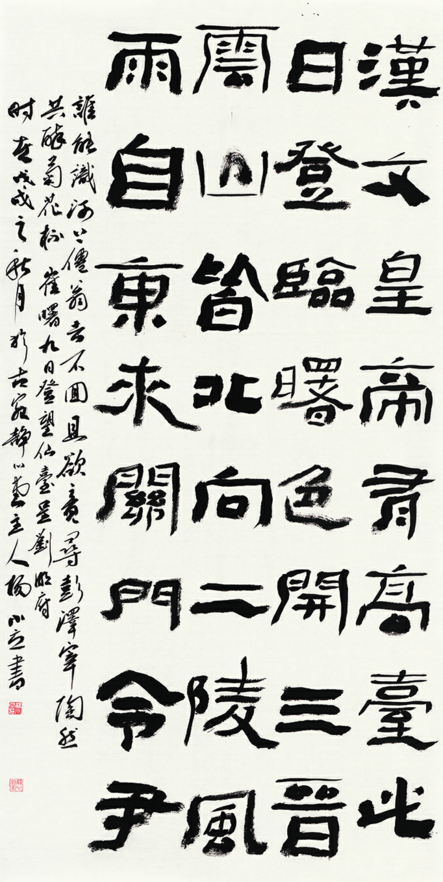 漢文皇帝有高臺此
日登臨曙色開三晉
雲山皆北向二陵風
雨自東来關門令尹
誰能識河上僊翁去不回且欲竟尋彭澤宰陶然
共醉菊花杯 崔曙九日登望仙臺呈劉明府
时在戊戌之秋月於古静心主人楊書